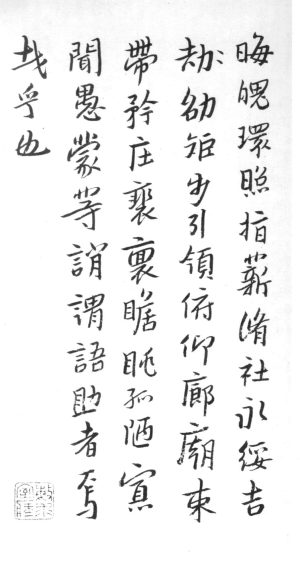 晦魄環照指薪脩社永綏吉
劫劭矩步引領俯仰廊廟束
帶矜庄裵褢瞻眺孤陋寡
聞愚蒙等誚謂語助者焉
哉乎也